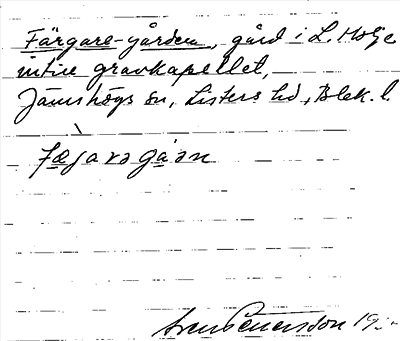 Färgare-gården, gård i L. Holje
intill gravkapellet,
Jämshögs sn, Listers hd, Blek. l.
fæjarəgåən
Sven Petersson 19